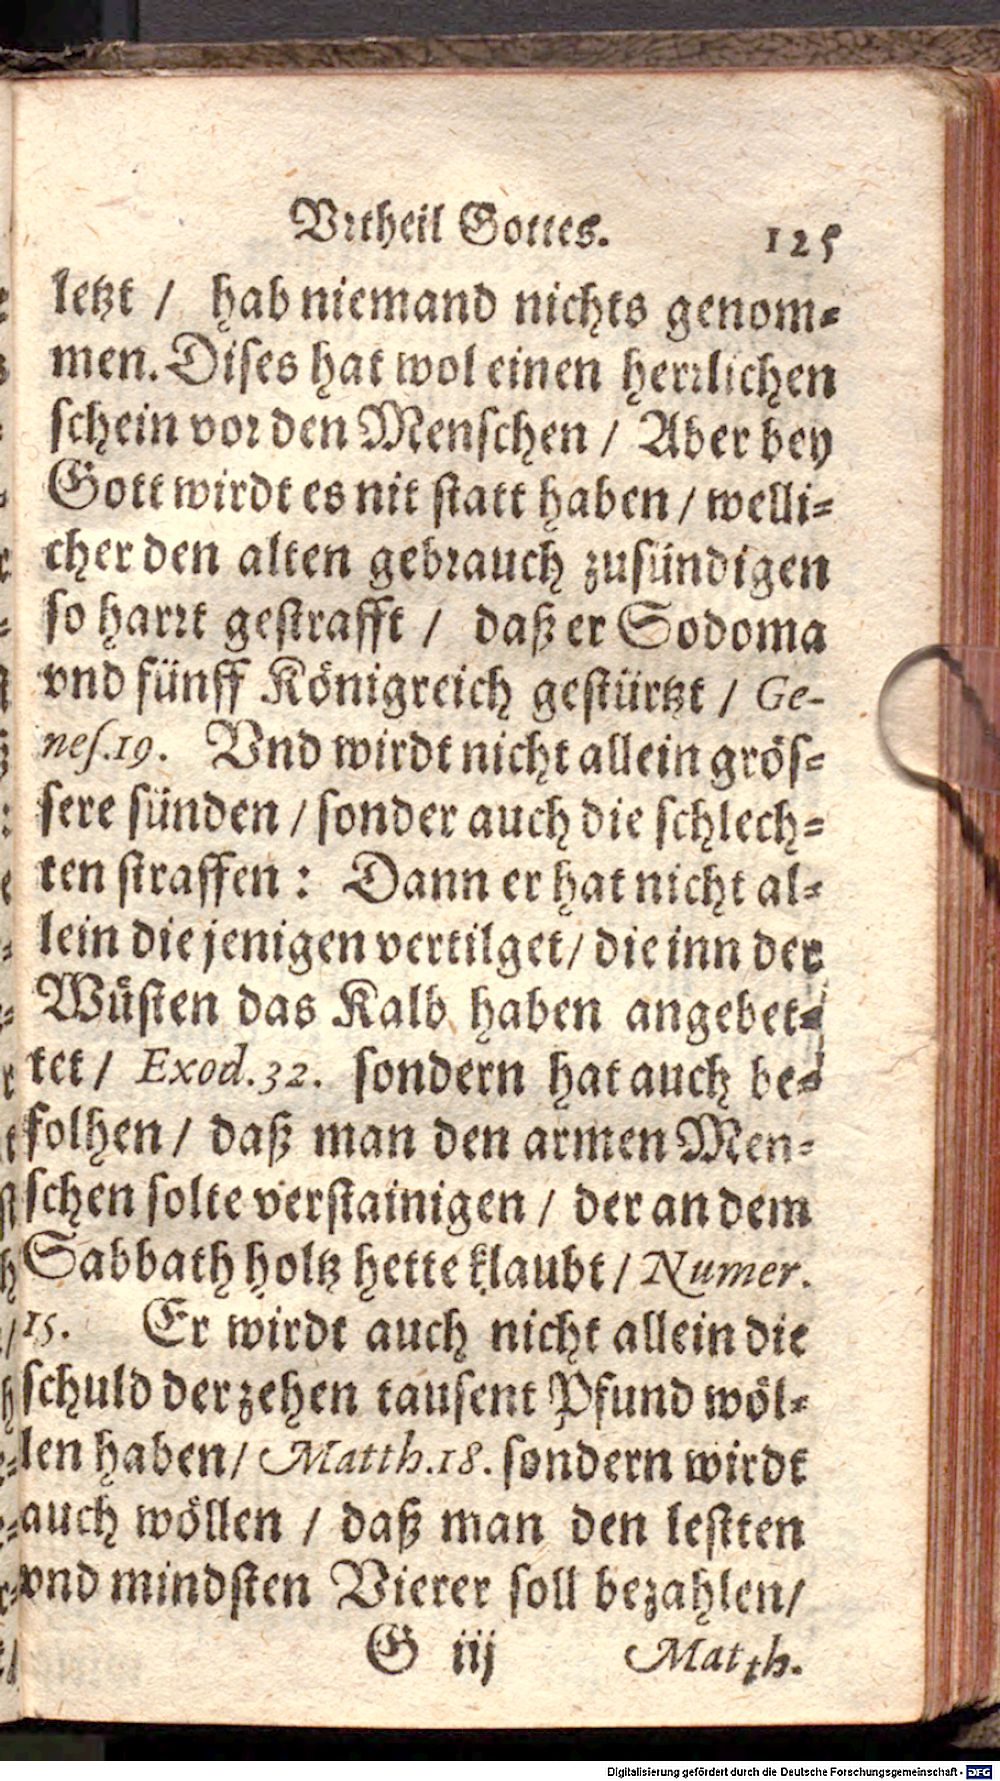 Vrtheil Gottes. 125
letzt / hab niemand nichts genom⸗
men. Dises hat wol einen herrlichen
schein vor den Menschen / Aber bey
Gott wirdt es nit statt haben / welli⸗
cher den alten gebrauch zusündigen
so harrt gestrafft / daß er Sodoma
vnd fünff Königreich gestürtzt / Ge-
nes.19. Vnd wirdt nicht allein grös⸗
sere sünden / sonder auch die schlech⸗
ten straffen: Dann er hat nicht al⸗
lein die jenigen vertilget / die inn der
Wüsten das Kalb haben angebet⸗
tet / Exod.32. sondern hat auch be⸗
folhen / daß man den armen Men⸗
schen solte verstainigen / der an dem
Sabbath holtz hette klaubt / Numer.
15. Er wirdt auch nicht allein die
schuld der zehen tausent Pfund wöl⸗
len haben / Matth.18. sondern wirdt
auch wöllen / daß man den lestten
vnd mindsten Vierer soll bezahlen /
G iij Matth.
Digitalisierung gefördert durch die Deutsche Forschungsgemeinschaft - DFG